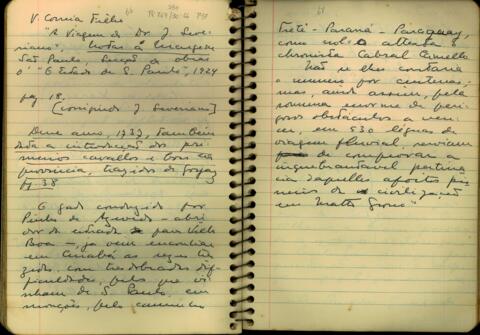 V. Correia Filho
"A Viagem do Dr. J. Seve-
riano", Notas à margem
São Paulo, Secção de obras
d' "O Estado de S. Paulo", 1924
pag 18,
[corrigindo J. Severiano]
Deste ano, 1739, também
data a introdução dos pri-
meiros cavallos e bois na
provincia, trazidos de Goyaz
pg 38
O gado conduzido por
Pinho de Azevedo – abri-
dor da estrada para Villa
Boa –, ja veio encontrar
em Cuiabá as rezes tra-
zidas, com tresdobradas dif-
ficuldades, pelos que vi-
nham de S. Paulo, em
monções, pelo caminho
61
Tieté - Paraná - Paraguay,
como nol-o attesta o
chronista Cabral Camello
Não se lhes contaria
o numero por centenas,
mas, ainda assim, pela
somma enorme de peri-
gosos obstaculos a ven-
cer, em 530 leguas de
viagem fluvial, serviam
de comprovar a
inquebrantavel pertina-
cia daquelles afoitos pio-
neiros da civilização
em Matto Grosso"